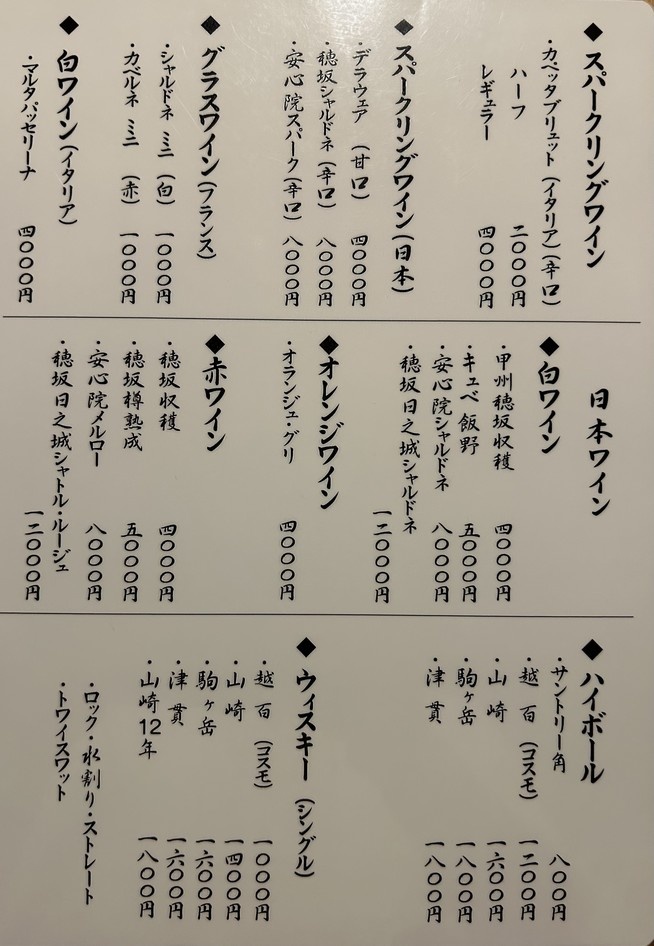 ◆スパークリングワイン
・カペッタブリュット(イタリア)(辛口)
ハーフ 二〇〇〇円
レギュラー 四〇〇〇円
◆スパークリングワイン(日本)
・デラウェア (甘口) 四〇〇〇円
・穂坂シャルドネ(辛口) 八〇〇〇円
・安心院スパーク(辛口) 八〇〇〇円
◆グラスワイン(フランス)
・シャルドネ ミニ (白) 一〇〇〇円
・カベルネ ミニ (赤) 一〇〇〇円
◆白ワイン(イタリア)
・マルタパッセリーナ 四〇〇〇円
日本ワイン
◆白ワイン
・甲州穂坂収穫 四〇〇〇円
・キュベ飯野 五〇〇〇円
・安心院シャルドネ 八〇〇〇円
・穂坂日之城シャルドネ 一二〇〇〇円
◆オレンジワイン
・オランジュ・グリ 四〇〇〇円
◆赤ワイン
・穂坂収穫 四〇〇〇円
・穂坂樽熟成 五〇〇〇円
・安心院メルロー 八〇〇〇円
・穂坂日之城シャトル・ルージュ 一二〇〇〇円
◆ハイボール
・サントリー角 八〇〇円
・越百 (コスモ) 一二〇〇円
・山崎 一六〇〇円
・駒ヶ岳 一八〇〇円
・津貫 一八〇〇円
◆ウィスキー (シングル)
・越百 (コスモ) 一〇〇〇円
・山崎 一四〇〇円
・駒ヶ岳 一六〇〇円
・津貫 一六〇〇円
・山崎12年 一八〇〇円
・ロック・水割り・ストレート
・トワイスワット